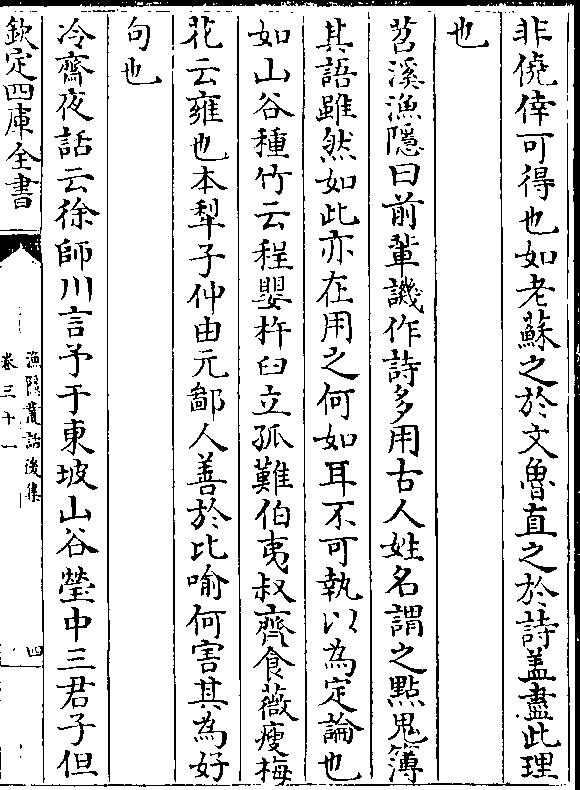 非僥倖可得也如老蘇之於文魯直之於詩盖盡此理
也
苕溪漁隱曰前輩譏作詩多用古人姓名謂之點鬼簿
其語雖然如此亦在用之何如耳不可執以為定論也
如山谷種竹云程嬰杵臼立孤難伯夷叔齊食薇瘦梅
花云雍也本犁子仲由元鄙人善於比喻何害其為好
句也
冷齋夜話云徐師川言予于東坡山谷瑩中三君子但
欽定四庫全書
漁隱叢話後集
卷三十一
四